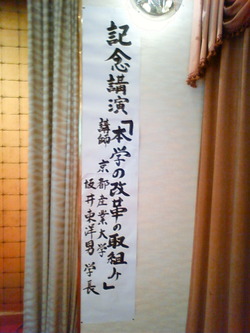 記念講演「本学の改革の取組み」
講師 京都産業大学
坂井東洋男 学長